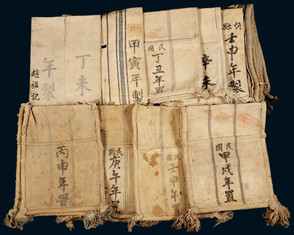 丁未
年製
趙福記
甲寅年製
民國
丁丑年置
辛未
壬申年製
丙申年置
民國
庚午年置
壬申
民國
甲戌年置